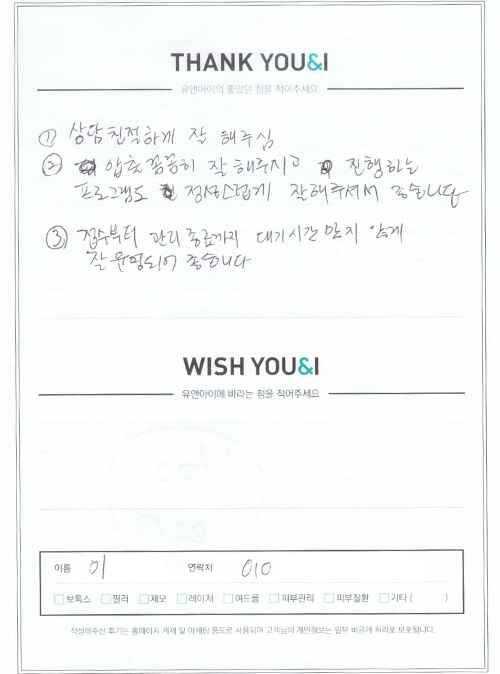 THANK YOU&I
유앤아이의 좋았던 점을 적어주세요
① 상담 친절하게 잘 해주심
② 압출 꼼꼼히 잘 해주시고 진행하는
프로그램도 정성스럽게 잘해주셔서 좋습니다
③ 접수부터 관리 종료까지 대기시간 많지 않게
잘 운영되어 좋습니다
WISH YOU&I
유앤아이에 바라는 점을 적어주세요
이름 이 연락처 010
보톡스 필러 제모 레이저 여드름 피부관리 피부질환 기타 ( )
작성해주신 후기는 홈페이지 게재 및 마케팅 용도로 사용되며 고객님의 개인정보는 일부 비공개 처리로 보호됩니다.